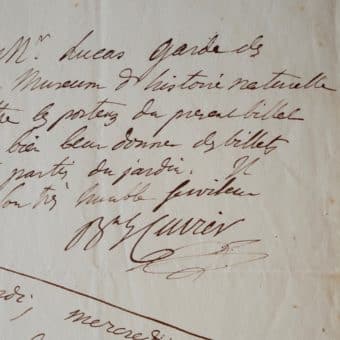 Mr. Lucas garde des
Museum d'histoire naturelle
les porteurs du present billet
bien leur donner des billets
partie du jardin. Il
Son très humble serviteur
Bn G Cuvier
mercredi